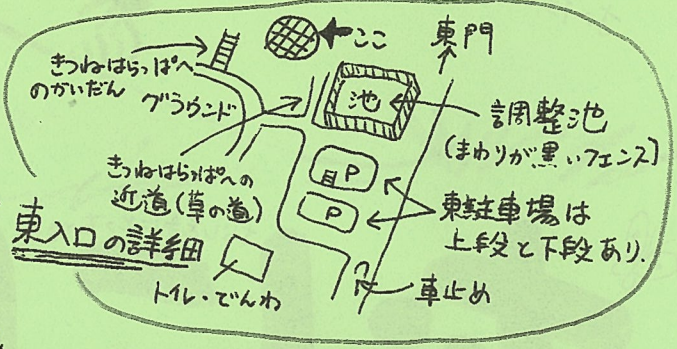 きつねはらっぱへ
のかいだん
ここ
東門
グラウンド
池
調整池
(まわりが黒いフェンス)
きつねはらっぱへの
近道(草の道)
P
P
東駐車場は
上段と下段あり.
東入口の詳細
トイレ・でんわ
車止め